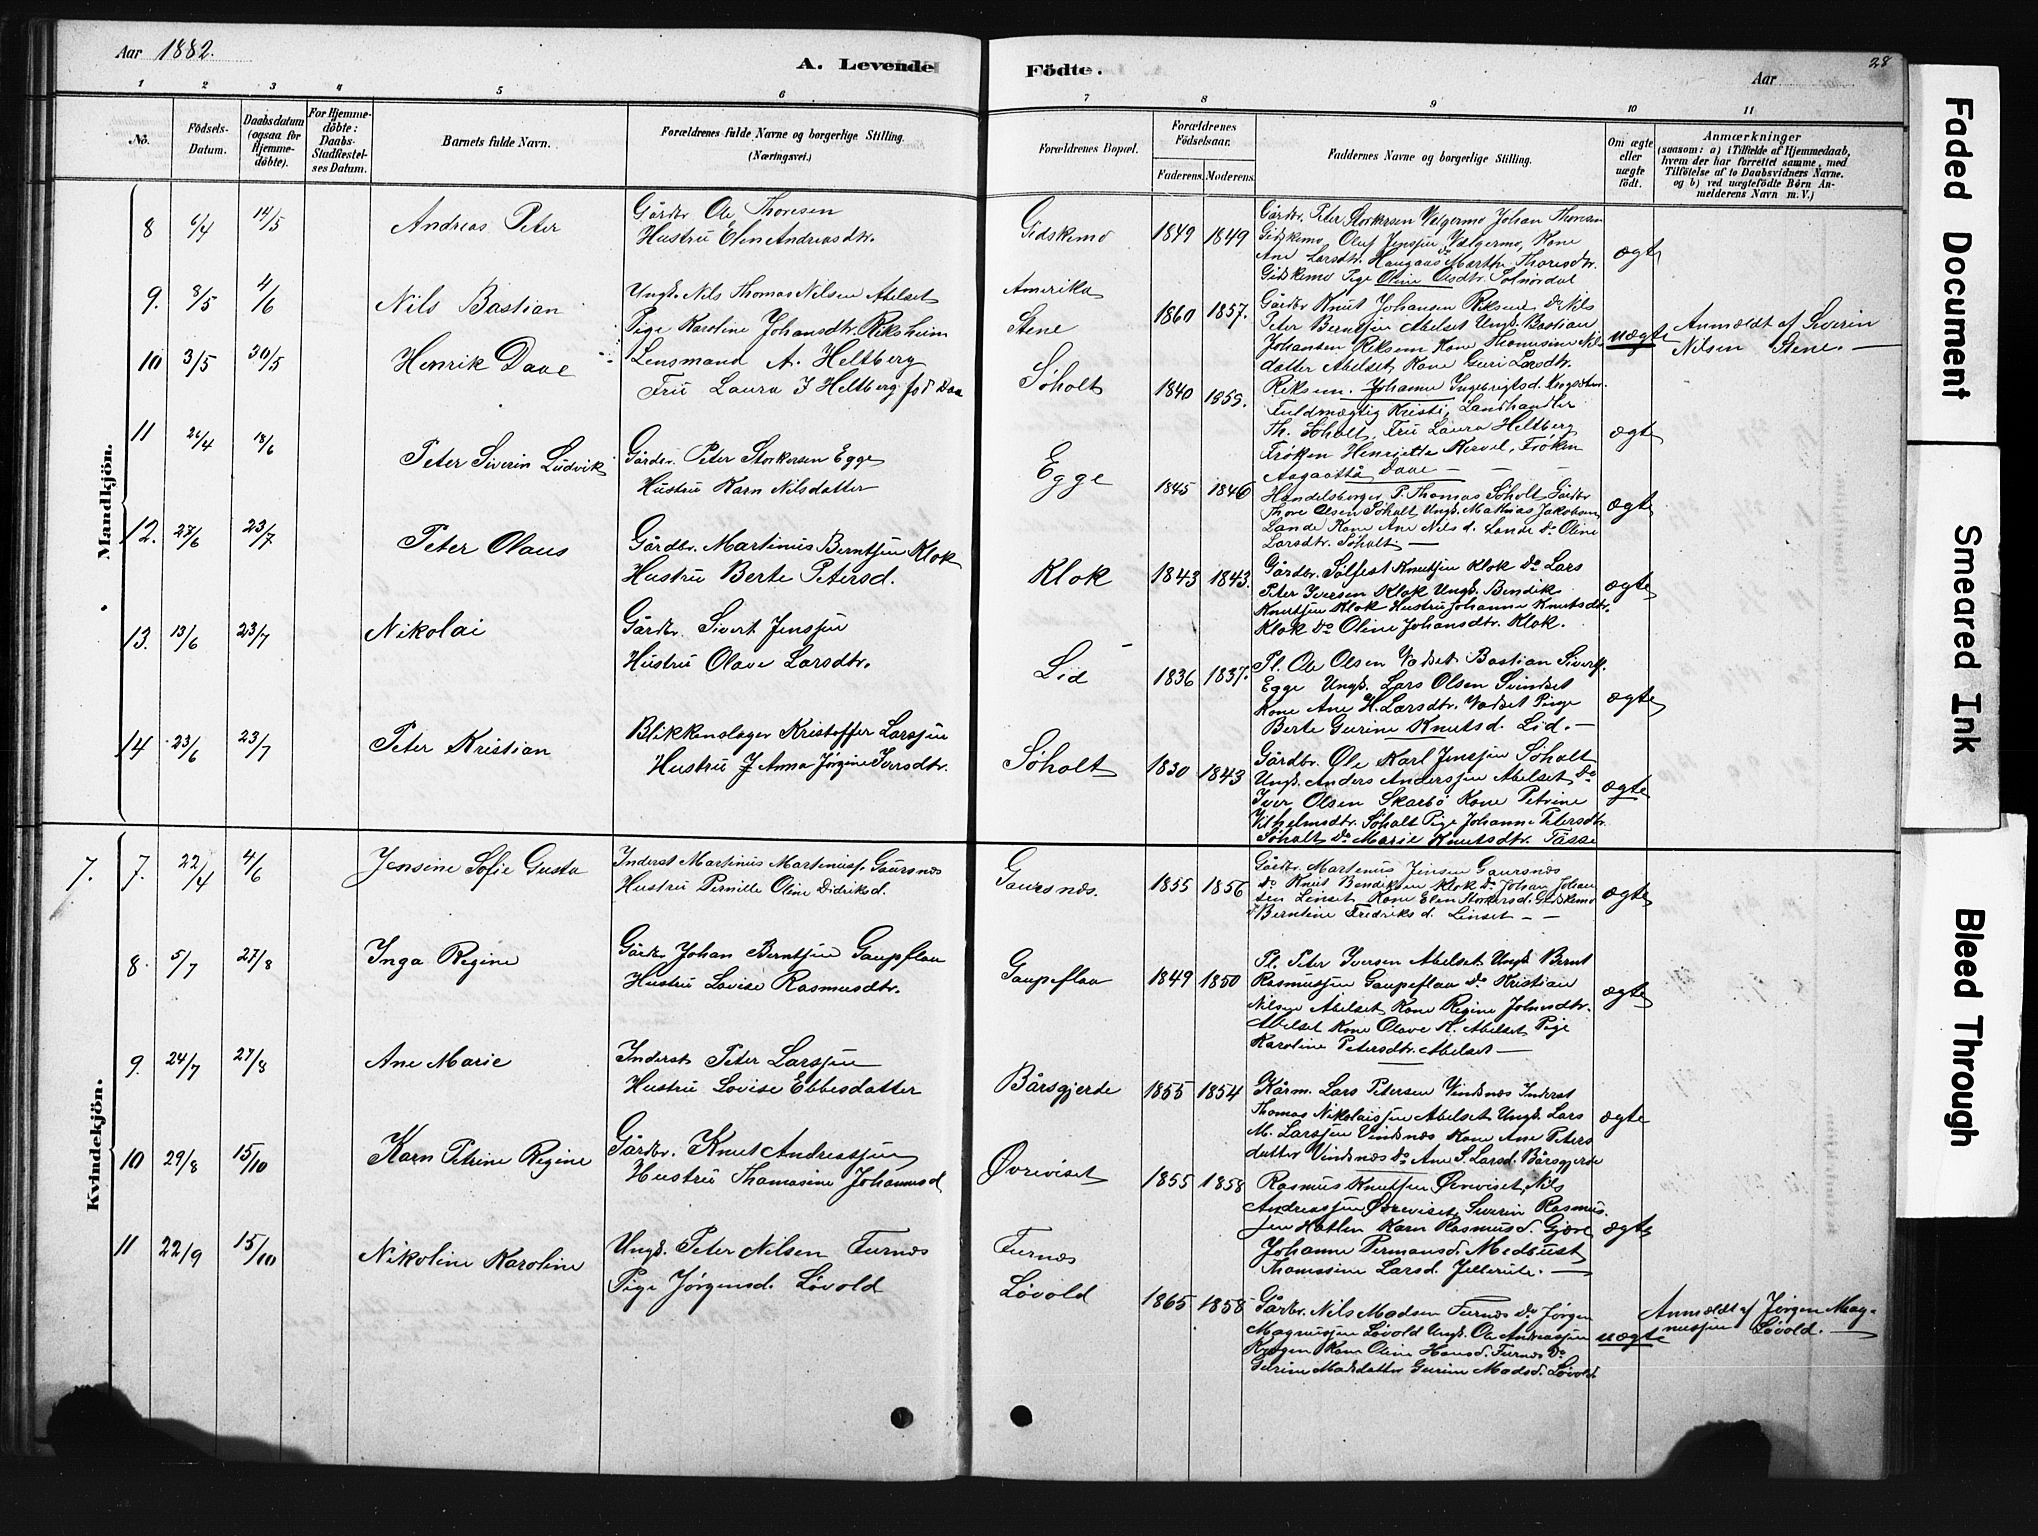 Aar 1882.
A. Levende Födte.
Aar
28
1 2 3 4 5 6 7 8 9 10 11
No.
Födsels-Datum.
Daabsdatum (ogsaa for Hjemme-döbte).
For Hjemme-döbte: Daabs-Stadfæstel-ses Datum.
Barnets fulde Navn.
Forældrenes fulde Navne og borgerlige Stilling. (Næringsvei.)
Forældrenes Bopæl.
Forældrenes Födselsaar.
Faderens. Moderens.
Faddernes Navne og borgerlige Stilling.
Om ægte eller uægte födt.
Anmærkninger
(saasom: a) i Tilfælde af Hjemmedaab, hvem der har forrettet samme, med Tilföielse af to Daabsvidners Navne. og b) ved uægtefödte Börn An-melderens Navn m. V.)
Mandkjön.
8 6/4 14/5 Andreas Peter
Gårdbr. Ole Thoresen
Hustru Elen Andreasdtr.
Gidskemo 1849 1849
Gårdbr. Peter Storkersen Velgermo Johan Thoresen
Gidskemo, Oluf Jenssen Vælgermo, Kone
Ane Larsdtr. Haugaas Do Marthe Thoresdtr.
Gidskemo Pige Oline Olsdtr. Solnørdal
ægte
9. 8/5 4/6 Nils Bastian
Ungk. Nils Thomas Nilsen Abelset
Pige Karoline Johansdtr. Riksheim
Amerika
Stene
1860 1857.
Gårdbr Knut Johansen Riksem Do Nils
Peter Berntsen Abelset Ungk. Bastian
Johansen Riksem Kone Thomasine Nils-
datter Abelset Kone Guri Larsdtr.
Riksem. Johanne Ingebrigtsd.
uægte
Anmeldt af Severin
Nilsen Stene.
10 3/5 30/5 Henrik Daae
Lensmand A. Heltberg
Fru Laura J Heltberg fød Daa
Søholt 1840 1855.
Fuldmægtig Kristi, Landhandler
Th. Søholt, Fru Laura Heltberg
Frøken Henriette Kervel, Frøken
Aagaatha Daae
ægte
11 26/4 18/6 Peter Siverin Ludvik
Gårdbr. Peter Storkersen Egge
Hustru Karn Nilsdatter
Egge 1845 1846
Handelsborger P. Thomas Søholt Gårdbr
Thore Olsen Søholt Ungk. Mathias Jakobsen
Lande Kone Ane Nilsd. Lande Do Oline
Larsdtr. Søholt
ægte
12. 23/6 23/7 Peter Olaus
Gårdbr. Martinus Berntsen Klok
Hustru Berte Petersd.
Klok 1843 1843.
Gårdbr. Sølfest Knutsen Klok Do Lars
Peter Iversen Klok Ungk. Bendik
Knutsen Klok Hustru Johanne Knutsdtr.
Klok Do Oline Johansdtr. Klok.
ægte
13. 13/6 23/7 Nikolai
Gårdbr. Sivert Jenssen
Hustru Olave Larsdtr.
Lid 1836 1837.
Pl. Ole Olsen Vadset Bastian Sivertss.
Egge Ungk. Lars Olsen Svindset
Kone Ane H. Larsdtr. Vadset Pige
Berte Gurine Knutsd. Lid.
ægte
14 23/6 23/7 Peter Kristian
Blikkenslager Kristoffer Larssen
Hustru J Anna Jørgine Iversdtr.
Søholt 1830 1843
Gårdbr. Ole Karl Jenssen Søholt
Ungk. Anders Anderssen Abelset Do
Iver Olsen Skarbø Kone Petrine
Vilhelmsdtr. Søholt Pige Johanne Petersdtr.
Søholt Do Marie Knutsdtr. Tasse
ægte
Kvindekjön.
7. 7. 22/4 4/6 Jensine Sofie Gusta
Inderst Martinus Martinuss. Gaursnæs
Hustru Pernille Oline Didriksd.
Gaursnæs. 1855 1856
Gårdbr. Martenus Jensen Gaursnæs
Do Knut Bendiksen Klok Do Johan Johan
sen Linset Kone Elen Storkersd. Gidskemo
Berntine Fredriksd. Linset
ægte
8. 5/7 27/8 Inga Regine
Gårdbr Johan Berntsen Gaupeflaa
Hustru Lovise Rasmusdtr.
Gaupeflaa 1849 1850
Pl. Peter Iversen Abelset Ungk Bernt
Rasmussen Gaupeflaa Do Kristian
Nilsen Abelset Kone Regine Johnsdtr.
Abelset Kone Olave N. Abelset Pige
Karoline Petersdtr. Abelset
ægte
9. 24/7 27/8 Ane Marie
Inderst Peter Larssen
Hustru Lovise Ebbesdatter
Bårsgjerde 1855 1854
Kårm. Lars Petersen Vindsnæs Inderst
Thomas Nikolaissen Abelset Ungk. Lars
M. Larssen Vindsnæs Kone Ane Peters
datter Vindsnæs Do Ane S. Larsd. Bårsgjerde
ægte
10 29/8 15/10 Karn Petrine Regine
Gårdbr. Knut Andreassen
Hustru Thomasine Johannesd
Øvreviset 1855 1858
Rasmus Knutsen Øvreviset, Nils
Andreassen Øvreviset, Severin Rasmus-
sen Hatlen Karn Rasmusd. Gjære
Johanne Permansd. Medbust
Thomasine Larsd. Jellerute.
ægte
11 22/9 15/10 Nikoline Karoline
Ungk. Peter Nilsen Furnæs
Pige Jørgensd. Løvold
Furnæs
Løvold
1865 1858
Gårdbr. Nils Madsen Furnæs Do Jørgen
Magnussen Løvold Ungk. Ole Andreassen
Kone Oline Hansd. Furnæs Do
Gurine Madsdatter Gurine Madsd. Løvold
uægte
Anmeldt af Jørgen Mag-
nussen Løvold.
Faded Document
Smeared Ink
Bleed Through